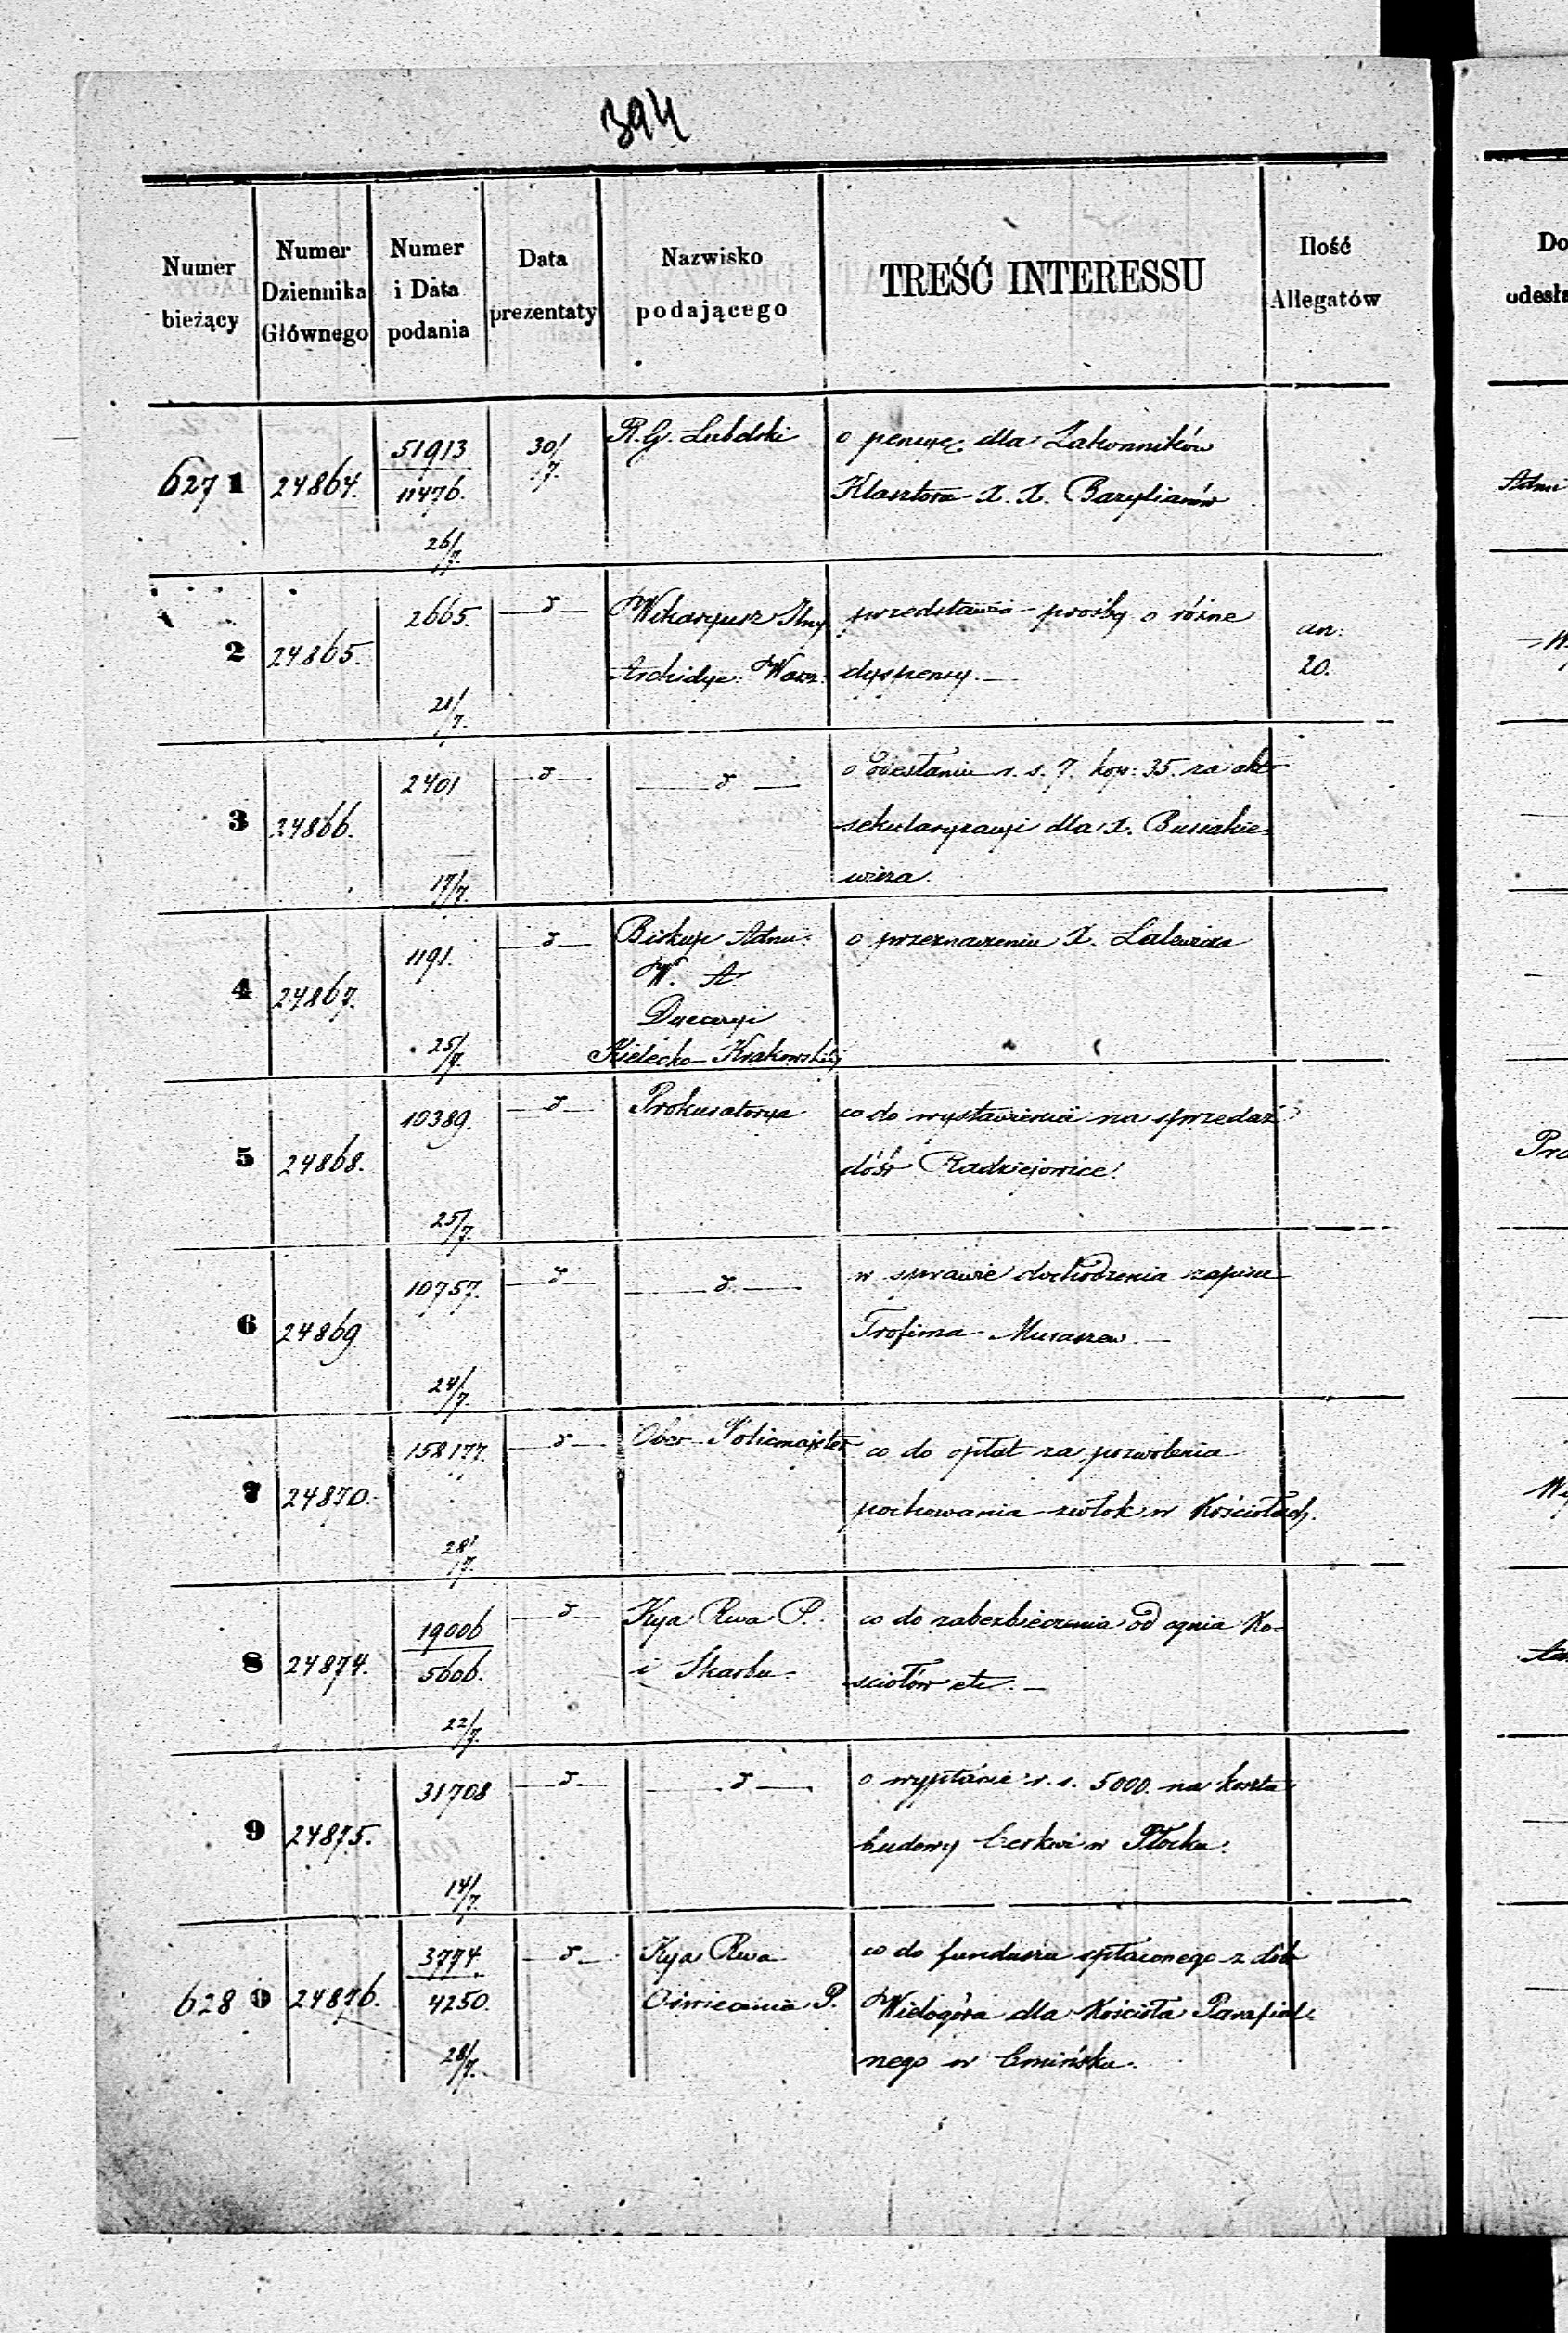 394
Numer bieżący
Numer Dziennika Głównego
Numer i Data podania
Data prezentaty
Nazwisko podającego
TREŚĆ INTERESSU
Ilość Allegatów
627 1 24864. 51913 30/7. R. G. Lubelski o pensyę dla Zakonników
11476. Klasztoru X. X. Bazylianów
26/7.
2 24865. 2665. — d — Wikaryusz przedstawia prośby o różne an:
Archidyec: Warsz: dyspensy. — 20.
21/7.
3 24866. 2401 — d — — d — o zesłaniu r. s. 7. kop: 35. za akt
sekularyzacyi dla X. Busiakie-
wicza.
17/7.
4 24867. 1191. — d — Biskup Adm. o przeznaczeniu X. Lalewicza
W. A.
Dyecezyi
25/7. Kielecko-Krakowskiej
5 24868. 10389. — d — Prokuratorya co do wystawienia na sprzedaż
dóbr Radziejowice.
25/7.
6 24869. 10757. — d — — d — w sprawie dochodzenia zapisu
Trofima —
24/7.
7 24870. 158177. — d — Ober-Policmajster co do opłat za pozwolenia
pochowania zwłok w Kościołach.
28/7.
8 24874. 19006 — d — Kya Rwa P. co do zabezbieczenia od ognia Ko-
5606. i Skarbu sciołów etc. —
22/7.
9 24875. 31708 — d — — d — o wypłacie r. s. 5000. na koszta
budowy Cerkwi w Płocku.
14/7.
628 0 24876. 3774 — d — Kya Rwa co do funduszu spłaconego z dóbr
4250. Oświecenia P. Wielogóra dla Kościoła Parafial-
28/7. nego w Cmińsku.
Do
odesła
Pro